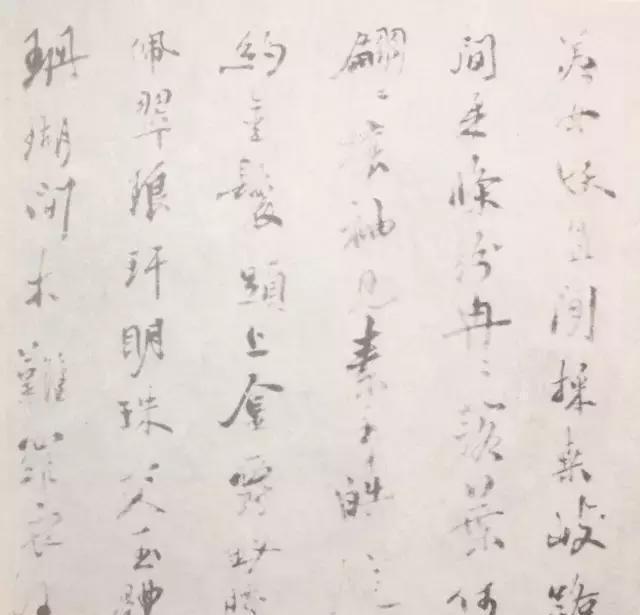 美女妖且閑採桑歧路
間柔條紛冉〻落葉何
翩〻攘袖見素手皓
約金環頭上金爵釵腰
佩翠琅玕明珠交玉體
珊瑚間木難羅衣